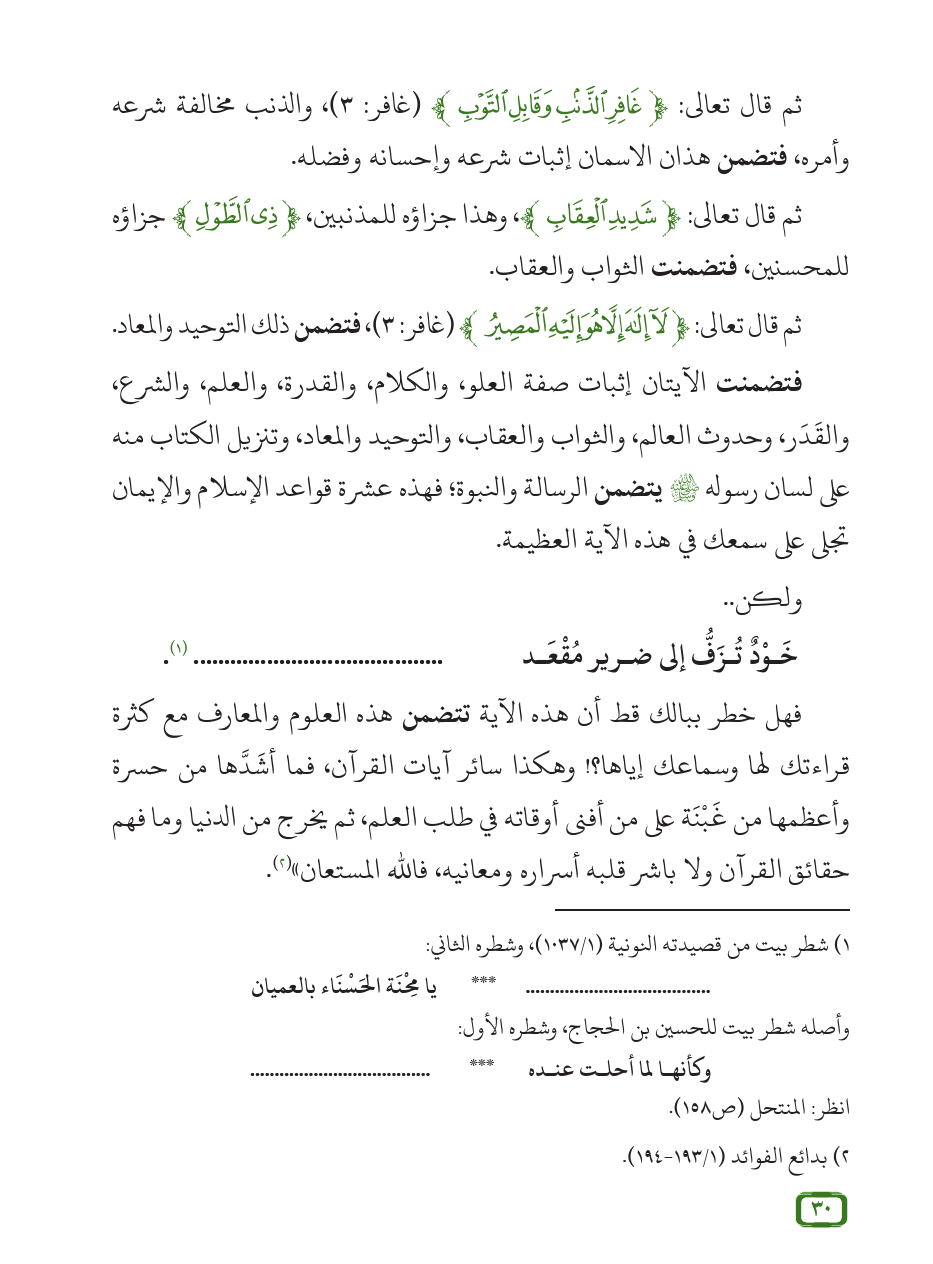 ثم قال تعالى: ﴿ غَافِرِ ٱلذَّنۢبِ وَقَابِلِ ٱلتَّوۡبِ ﴾ (غافر: ٣)، والذنب مخالفة شرعه
وأمره، فتضمن هذان الاسمان إثبات شرعه وإحسانه وفضله.
ثم قال تعالى: ﴿ شَدِيدِ ٱلۡعِقَابِ ﴾، وهذا جزاؤه للمذنبين، ﴿ ذِى ٱلطَّوۡلِ ﴾ جزاؤه
للمحسنين، فتضمنت الثواب والعقاب.
ثم قال تعالى: ﴿ لَآ إِلَٰهَ إِلَّا هُوَ إِلَيۡهِ ٱلۡمَصِيرُ ﴾ (غافر: ٣)، فتضمن ذلك التوحيد والمعاد.
فتضمنت الآيتان إثبات صفة العلو، والكلام، والقدرة، والعلم، والشرع،
والقَدَر، وحدوث العالم، والثواب والعقاب، والتوحيد والمعاد، وتنزيل الكتاب منه
على لسان رسوله ﷺ يتضمن الرسالة والنبوة؛ فهذه عشرة قواعد الإسلام والإيمان
تجلى على سمعك في هذه الآية العظيمة.
ولكن..
خَــوْدٌ تُــزَفُّ إلى ضــرير مُقْعَــد ......................................... (١).
فهل خطر ببالك قط أن هذه الآية تتضمن هذه العلوم والمعارف مع كثرة
قراءتك لها وسماعك إياها؟! وهكذا سائر آيات القرآن، فما أشَدَّها من حسرة
وأعظمها من غَبْنَة على من أفنى أوقاته في طلب العلم، ثم يخرج من الدنيا وما فهم
حقائق القرآن ولا باشر قلبه أسراره ومعانيه، فالله المستعان»(٢).
١) شطر بيت من قصيدته النونية (١/١٠٣٧)، وشطره الثاني:
...................................... *** يا مِحْنَة الحَسْنَاء بالعميان
وأصله شطر بيت للحسين بن الحجاج، وشطره الأول:
وكأنهــا لما أحلــت عنــده *** .....................................
انظر: المنتحل (ص١٥٨).
٢) بدائع الفوائد (١/١٩٣-١٩٤).
٣٠